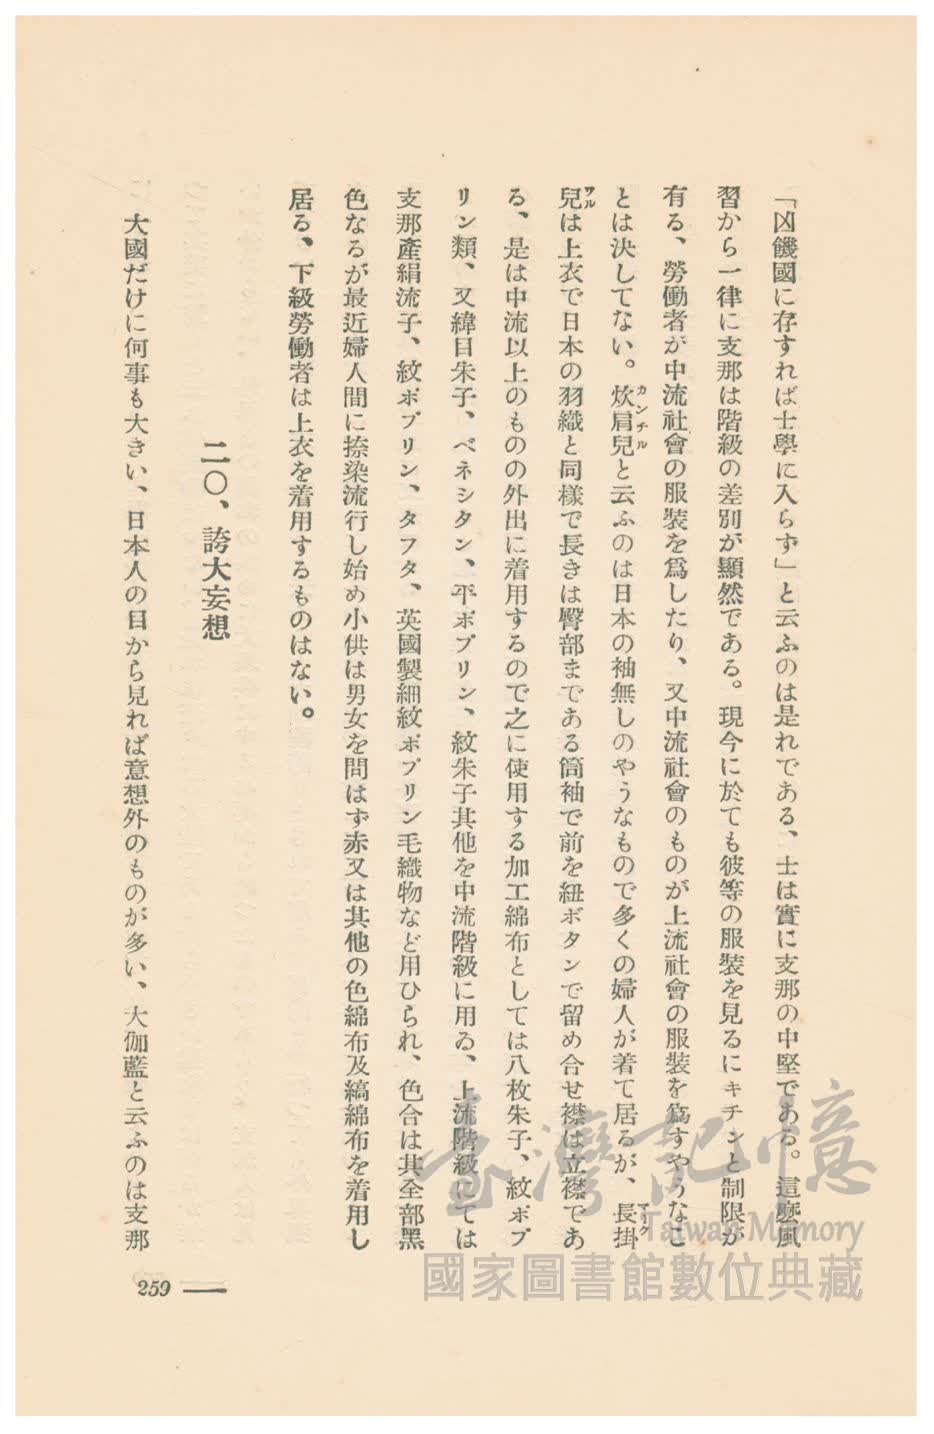 「凶饑國に存すれば士學に入らず」と云ふのは是れである、士は實に支那の中堅である。這麽風
習から一律に支那は階級の差別が顯然である。現今に於ても彼等の服裝を見るにキチンと制限が
有る、勞働者が中流社會の服裝を爲したり、又中流社會のものが上流社會の服裝を爲すやうなこ
とは決してない。炊肩兒と云ふのは日本の袖無しのやうなもので多くの婦人が着て居るが、長掛
カンチル
マアク
兒は上衣で日本の羽織と同樣で長きは臀部まである筒袖で前を紐ボタンで留め合せ襟は立襟であ
ワル
る、是は中流以上のものの外出に着用するので之に使用する加工綿布としては八枚朱子、紋ポプ
リン類、又緯目朱子、ベネシタン、平ポプリン、紋朱子其他を中流階級に用ゐ、上流階級にては
支那產絹流子、紋ポプリン、タフタ、英國製細紋ポプリン毛織物など用ひられ、色合は其全部黑
色なるが最近婦人間に捺染流行し始め小供は男女を問はず赤又は其他の色綿布及縞綿布を着用し
居る、下級勞働者は上衣を着用するものはない。
二〇、誇大妄想
大國だけに何事も大きい、日本人の目から見れば意想外のものが多い、大伽藍と云ふのは支那
259
臺灣記憶
Taiwan Memory
國家圖書館數位典藏